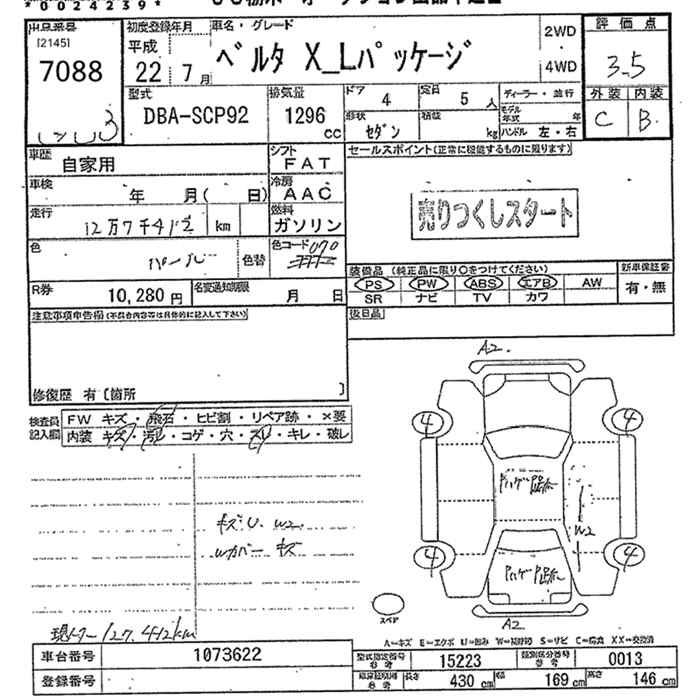 *0024239*
出品番号 [2145] 7088
初度登録年月 平成 22年 7月
車名・グレード ベルタ X_Lパッケージ
2WD
4WD
評価点 3.5
外装 C 内装 B
型式 DBA-SCP92
排気量 1296 cc
ドア 4
定員 5 人
形状 セダン
積載 kg
ディーラー・並行
モデル年式 年
ハンドル 左・右
車歴 自家用
シフト FAT
車検 年 月( 日)
冷房 AAC
走行 12万7千4 km
燃料 ガソリン
色 パール 色替
色コード 070
R券 10,280円
名変通知期限 月 日
セールスポイント(正常に機能するものに限ります)
売りつくしスタート
装備品 (純正品に限り○をつけてください)
PS PW ABS エアB AW
SR ナビ TV カワ
新車保証書 有・無
後日品
注意事項申告欄(不具合内容等は具体的に記入して下さい)
修復歴 有〔箇所 〕
検査員記入欄
FW キズ・飛石・ヒビ割・リペア跡・×要
内装 キズ・汚レ・コゲ・穴・スレ・キレ・破レ
キズU W2
Wカバー キズ
現メーター 127,412km
A2
4 4
W2
4 4
A2
スペア
A=キズ E=エクボ U=凹み W=補修跡 S=サビ C=腐食 XX=交換済
車台番号 1073622
登録番号
型式指定番号 参考 15223
類別区分番号 参考 0013
長さ 430 cm 幅 169 cm 高さ 146 cm